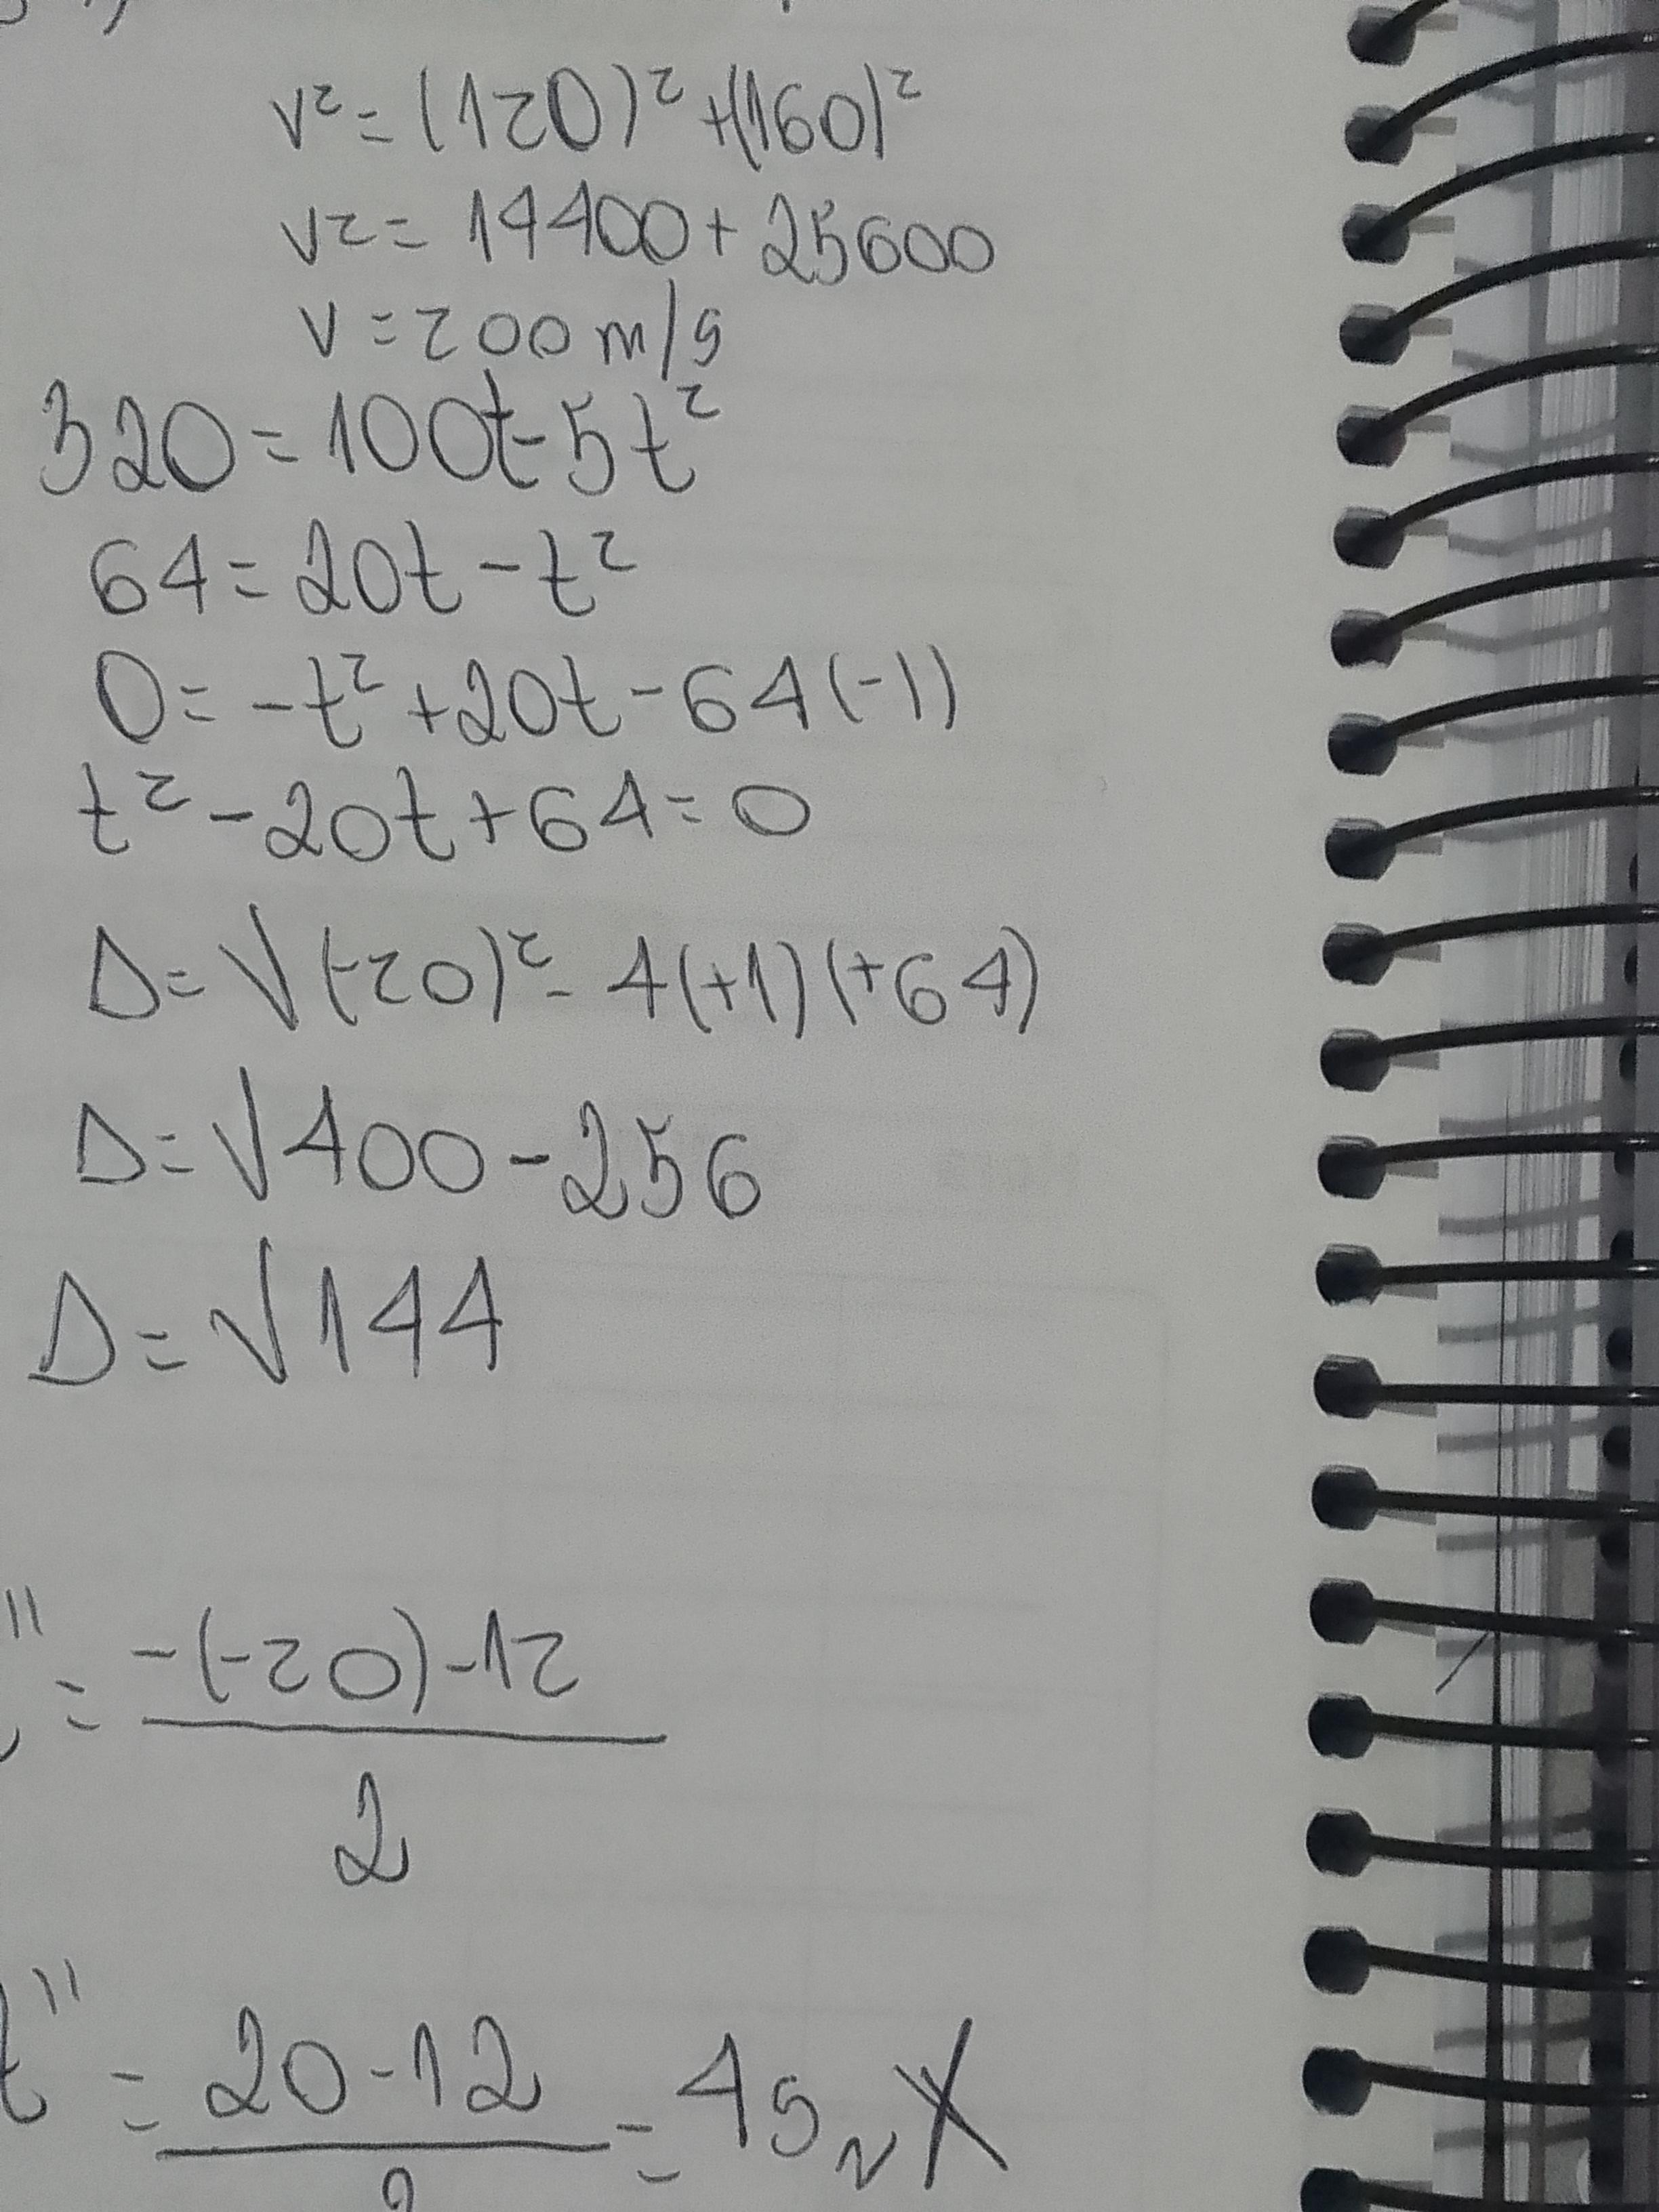 V² = (120)² + (160)²
V² = 14400 + 25600
V = 200 m/s
320 = 100t - 5t²
64 = 20t - t²
0 = -t² + 20t - 64 (-1)
t² - 20t + 64 = 0
Δ = √(-20)² - 4(+1)(+64)
Δ = √400 - 256
Δ = √144
" = -(-20) - 12
2
t" = 20 - 12 = 4s
2